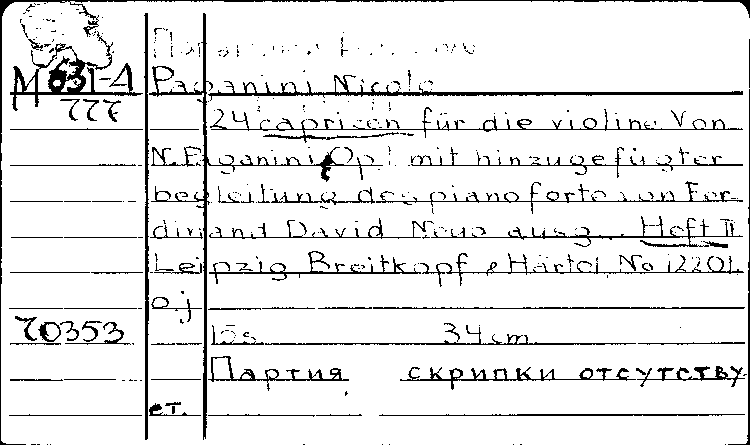 Паганини
М 631-4 Paganini, Nicolo
777 24 capricen für die violine Von
N. Paganini, Op. 1 mit hinzugefügter
begleitung des pianoforte von Fer
dinand David Neue ausg... Heft II
Leipzig, Breitkopf & Härtel, No 12201.
o.j
70353 15s. 34cm.
Партия скрипки отсутству
ет.